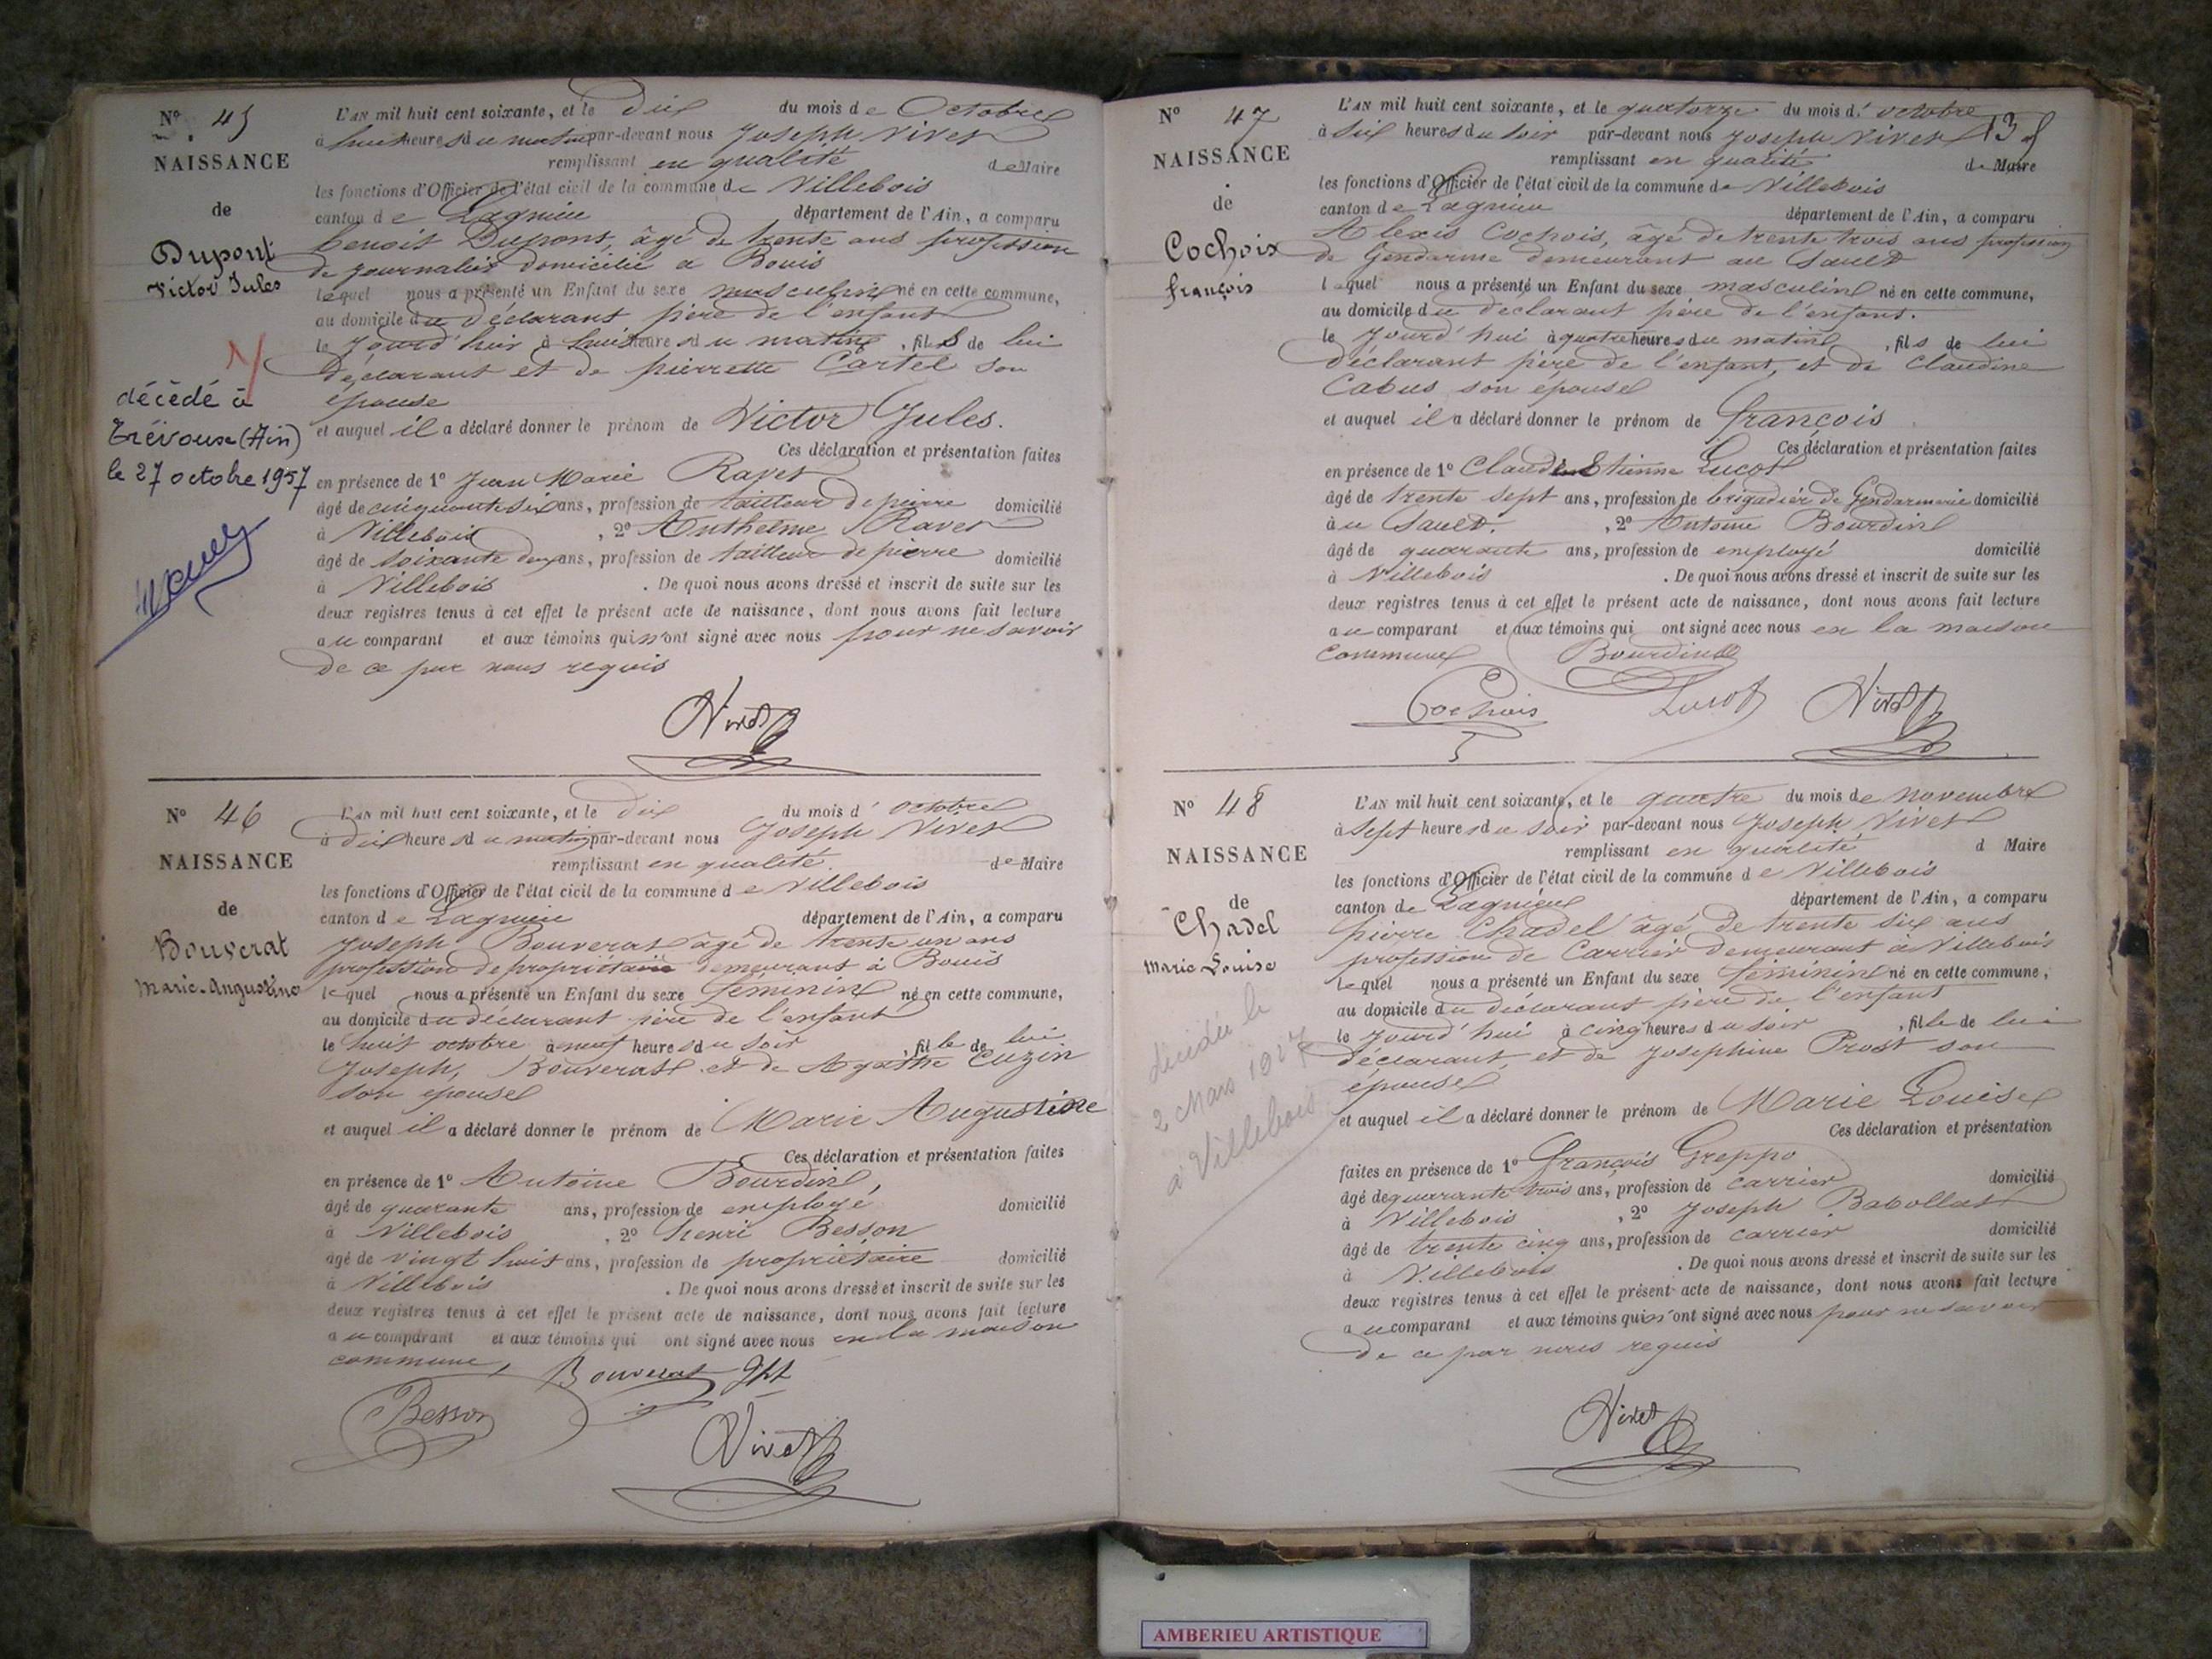 N° 45
NAISSANCE
de
Dupont
Victor Jules
décédé à
Trévoux (Ain)
le 27 octobre 1957
L'AN mil huit cent soixante, et le dix du mois de Octobre
à huit heures du matin par-devant nous Joseph Vivet
remplissant en qualité de Maire
les fonctions d'Officier de l'état civil de la commune de Villebois
canton de Lagnieu département de l'Ain, a comparu
benoit Dupont, âgé de trente ans profession
de journalier domicilié a Bouis
lequel nous a présenté un Enfant du sexe masculin né en cette commune,
au domicile du déclarant père de l'enfant
le jourd'hui à huit heures du matin, fils de lui
déclarant et de pierrette Cartel son
épouse
et auquel il a déclaré donner le prénom de Victor Jules.
Ces déclaration et présentation faites
en présence de 1° Jean Marie Ravet
âgé de cinquante six ans, profession de tailleur de pierre domicilié
à Villebois, 2° Anthelme Ravet
âgé de soixante deux ans, profession de tailleur de pierre domicilié
à Villebois. De quoi nous avons dressé et inscrit de suite sur les
deux registres tenus à cet effet le présent acte de naissance, dont nous avons fait lecture
au comparant et aux témoins qui n'ont signé avec nous pour ne savoir
de ce par nous requis
Vivet
N° 46
NAISSANCE
de
Bouverat
Marie-Augustine
L'AN mil huit cent soixante, et le dix du mois d' octobre
à dix heures du matin par-devant nous Joseph Vivet
remplissant en qualité de Maire
les fonctions d'Officier de l'état civil de la commune de Villebois
canton de Lagnieu département de l'Ain, a comparu
Joseph Bouverat âgé de trente un ans
profession de propriétaire demeurant à Bouis
lequel nous a présenté un Enfant du sexe féminin né en cette commune,
au domicile du déclarant père de l'enfant
le huit octobre à neuf heures du soir, fille de lui
Joseph, Bouverat et de Agathe Cuzin
son epouse
et auquel il a déclaré donner le prénom de Marie Augustine
Ces déclaration et présentation faites
en présence de 1° Antoine Bourdin,
âgé de quarante ans, profession de employé domicilié
à Villebois, 2° henri Besson
âgé de vingt huit ans, profession de propriétaire domicilié
à Villebois. De quoi nous avons dressé et inscrit de suite sur les
deux registres tenus à cet effet le présent acte de naissance, dont nous avons fait lecture
au comparant et aux témoins qui ont signé avec nous en la maison
commune,
Bouverat Jph
Besson
Vivet
N° 47
NAISSANCE
de
Cochoix
françois
L'AN mil huit cent soixante, et le quatorze du mois d' octobre
à six heures du soir par-devant nous Joseph Vivet
remplissant en qualité de Maire
les fonctions d'Officier de l'état civil de la commune de Villebois
canton de Lagnieu département de l'Ain, a comparu
Alexis Cochois, âgé de trente trois ans profession
de Gendarme demeurant au Sault
lequel nous a présenté un Enfant du sexe masculin né en cette commune,
au domicile du declarant père de l'enfant.
le jourd'hui à quatre heures du matin, fils de lui
déclarant père de l'enfant, et de Claudine
Cabus son épouse
et auquel il a déclaré donner le prénom de françois
Ces déclaration et présentation faites
en présence de 1° Claude Etienne Lucot
âgé de trente sept ans, profession de brigadier de Gendarmerie domicilié
à u Sault., 2° Antoine Bourdin
âgé de quarante ans, profession de employé domicilié
à Villebois. De quoi nous avons dressé et inscrit de suite sur les
deux registres tenus à cet effet le présent acte de naissance, dont nous avons fait lecture
au comparant et aux témoins qui ont signé avec nous en la maison
commune
Bourdin
Cochois Lucot Vivet
N° 48
NAISSANCE
de
Chadel
Marie Louise
décédée le
2 Mars 1927
à Villebois
L'AN mil huit cent soixante, et le quatre du mois de novembre
à sept heures du soir par-devant nous Joseph Vivet
remplissant en qualité d Maire
les fonctions d'Officier de l'état civil de la commune de Villebois
canton de Lagnieu département de l'Ain, a comparu
pierre Chadel âgé de trente six ans
profession de Carrier demeurant à Villebois
lequel nous a présenté un Enfant du sexe féminin né en cette commune,
au domicile du déclarant père de l'enfant
le jourd'hui à cinq heures du soir, fille de lui
déclarant, et de Josephine Prost son
épouse
et auquel il a déclaré donner le prénom de Marie Louise
Ces déclaration et présentation
faites en présence de 1° françois Greppo
âgé de quarante trois ans, profession de carrier domicilié
à Villebois, 2° Joseph Babollat
âgé de trente cinq ans, profession de carrier domicilié
à Villebois. De quoi nous avons dressé et inscrit de suite sur les
deux registres tenus à cet effet le présent acte de naissance, dont nous avons fait lecture
au comparant et aux témoins qui n'ont signé avec nous pour ne savoir
de ce par nous requis
Vivet
AMBERIEU ARTISTIQUE